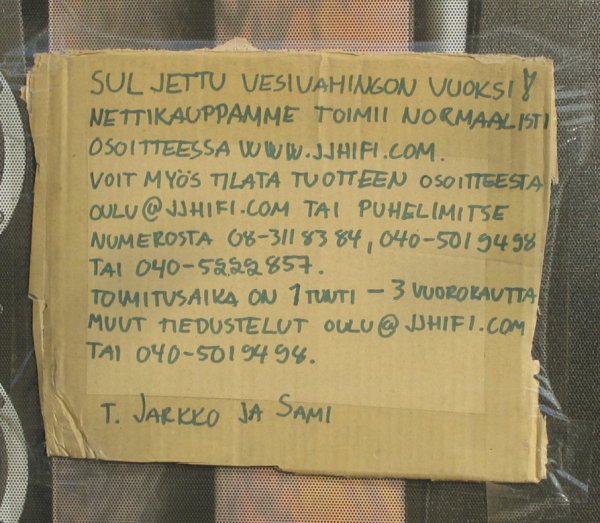 SULJETTU VESIVAHINGON VUOKSI!
NETTIKAUPPAMME TOIMII NORMAALISTI
OSOITTEESSA WWW.JJHIFI.COM.
VOIT MYÖS TILATA TUOTTEEN OSOITTEESTA
OULU@JJHIFI.COM TAI PUHELIMITSE
NUMEROSTA 08-3118384, 040-5019498
TAI 040-5222857.
TOIMITUSAIKA ON 1 TUNTI – 3 VUOROKAUTTA
MUUT TIEDUSTELUT OULU@JJHIFI.COM
TAI 040-5019498.
T. JARKKO JA SAMI